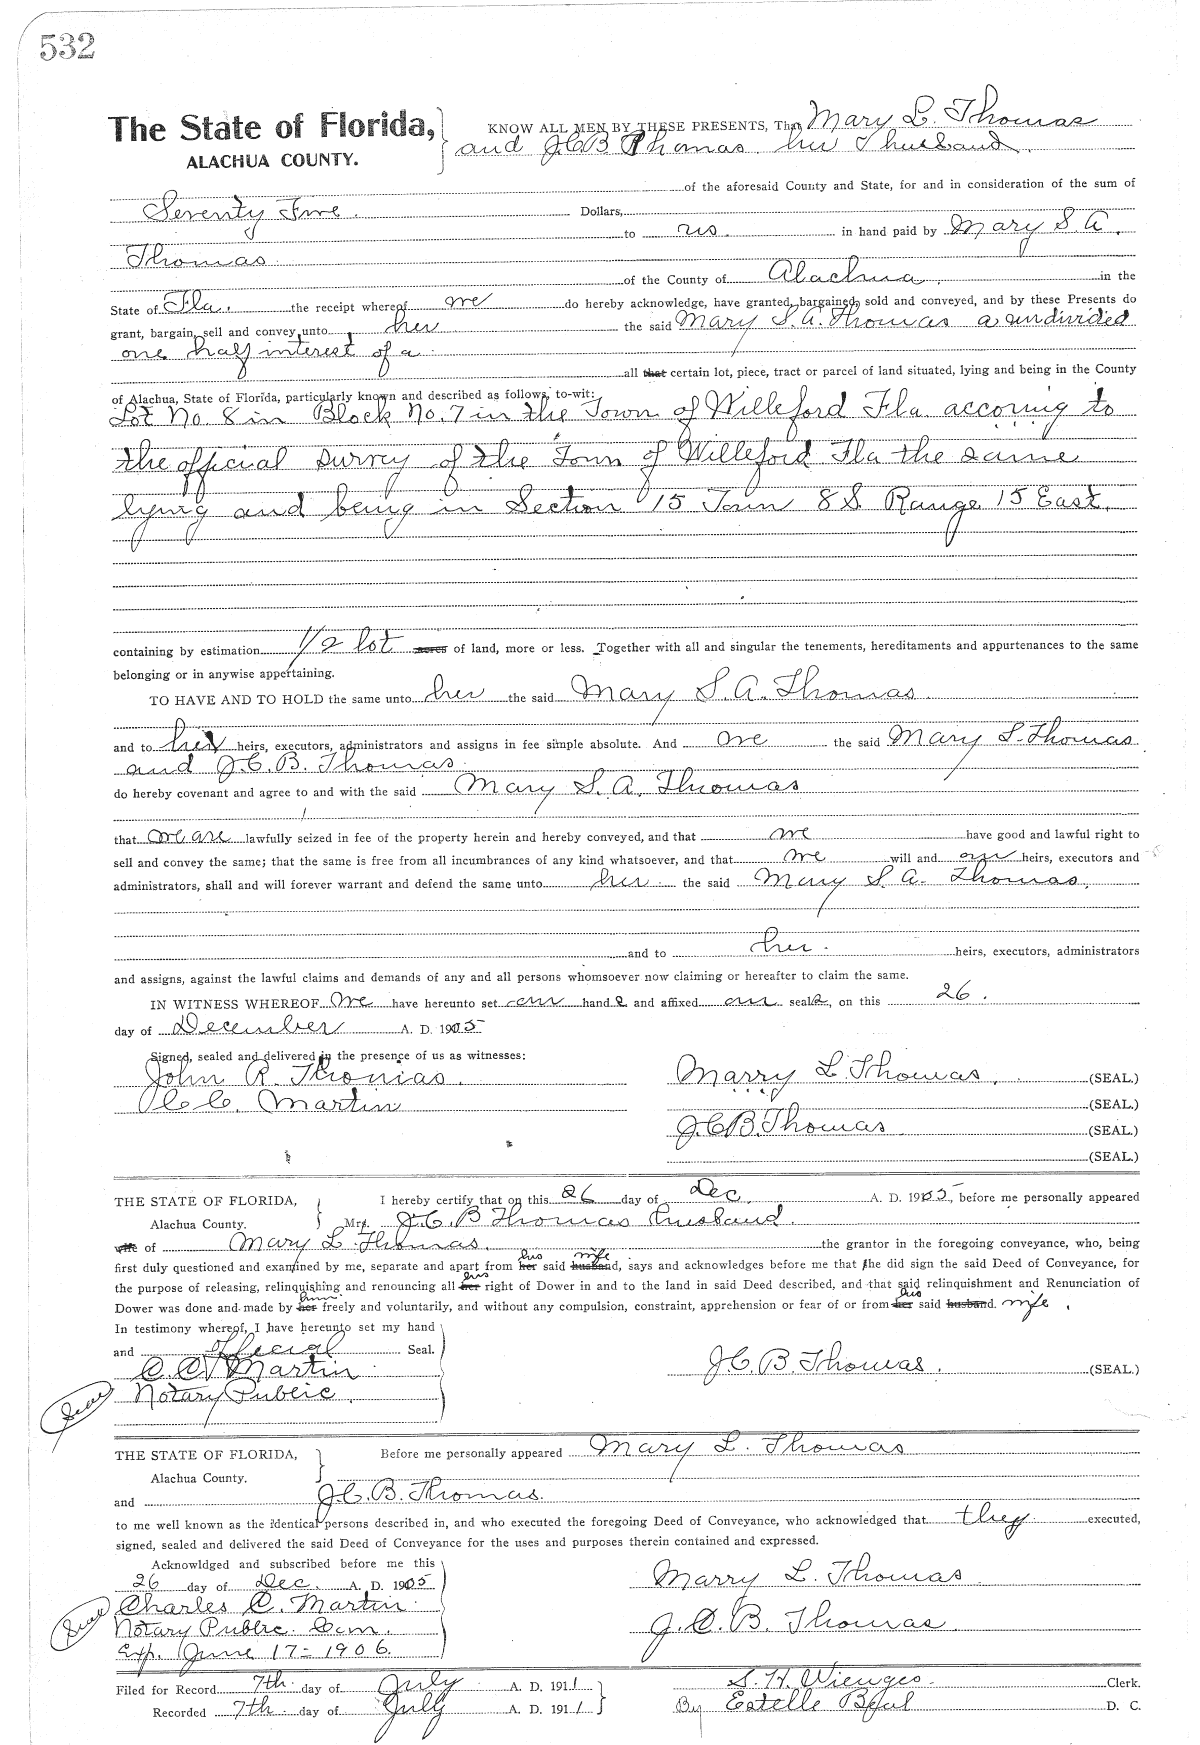 532
The State of Florida, KNOW ALL MEN BY THESE PRESENTS, That Mary L. Thomas
ALACHUA COUNTY. and J.C.B Thomas her husband.
of the aforesaid County and State, for and in consideration of the sum of
Seventy Five. Dollars,
to us. in hand paid by Mary S A.
Thomas
of the County of Alachua, in the
State of Fla. the receipt whereof we do hereby acknowledge, have granted, bargained, sold and conveyed, and by these Presents do
grant, bargain, sell and convey unto her the said Mary S. A. Thomas a undivided
one half interest of a
all that certain lot, piece, tract or parcel of land situated, lying and being in the County
of Alachua, State of Florida, particularly known and described as follows, to-wit:
Lot No. 8 in Block No. 7 in the Town of Willeford Fla. accoring to
the official survey of the Town of Willeford Fla the same
lying and being in Section 15 Town 8 S. Range 15 East.
containing by estimation 1/2 lot acres of land, more or less. Together with all and singular the tenements, hereditaments and appurtenances to the same
belonging or in anywise appertaining.
TO HAVE AND TO HOLD the same unto her the said Mary S. A. Thomas
and to her heirs, executors, administrators and assigns in fee simple absolute. And we the said Mary L. Thomas
and J. C. B. Thomas
do hereby covenant and agree to and with the said Mary S. A. Thomas
that we are lawfully seized in fee of the property herein and hereby conveyed, and that we have good and lawful right to
sell and convey the same; that the same is free from all incumbrances of any kind whatsoever, and that we will and our heirs, executors and
administrators, shall and will forever warrant and defend the same unto her the said Mary S. A. Thomas,
and to her. heirs, executors, administrators
and assigns, against the lawful claims and demands of any and all persons whomsoever now claiming or hereafter to claim the same.
IN WITNESS WHEREOF We have hereunto set our hands and affixed our seals, on this 26.
day of December A. D. 1905
Signed, sealed and delivered in the presence of us as witnesses:
John R. Thomas. Marry L. Thomas. (SEAL.)
C. C. Martin (SEAL.)
J.C.B. Thomas (SEAL.)
(SEAL.)
THE STATE OF FLORIDA, I hereby certify that on this 26 day of Dec. A. D. 1905, before me personally appeared
Alachua County. Mr. J. C. B Thomas husband.
wife of Mary L. Thomas. the grantor in the foregoing conveyance, who, being
first duly questioned and examined by me, separate and apart from her his said husband wife, says and acknowledges before me that he did sign the said Deed of Conveyance, for
the purpose of releasing, relinquishing and renouncing all her his right of Dower in and to the land in said Deed described, and that said relinquishment and Renunciation of
Dower was done and made by her him freely and voluntarily, and without any compulsion, constraint, apprehension or fear of or from her his said husband. wife.
In testimony whereof, I have hereunto set my hand
and official Seal.
C. C. Martin J.C. B. Thomas. (SEAL.)
Notary Public.
Seal
THE STATE OF FLORIDA, Before me personally appeared Mary L. Thomas
Alachua County.
and J.C. B. Thomas.
to me well known as the identical persons described in, and who executed the foregoing Deed of Conveyance, who acknowledged that they executed,
signed, sealed and delivered the said Deed of Conveyance for the uses and purposes therein contained and expressed.
Acknowldged and subscribed before me this
26 day of Dec. A. D. 1905 Marry L. Thomas
Charles C. Martin
Seal Notary Public. Com. J. C. B. Thomas.
Exp. June 17 - 1906.
Filed for Record 7th. day of July A. D. 1911 S. H. Wienges. Clerk.
Recorded 7th. day of July A. D. 1911 By Estelle D. C.